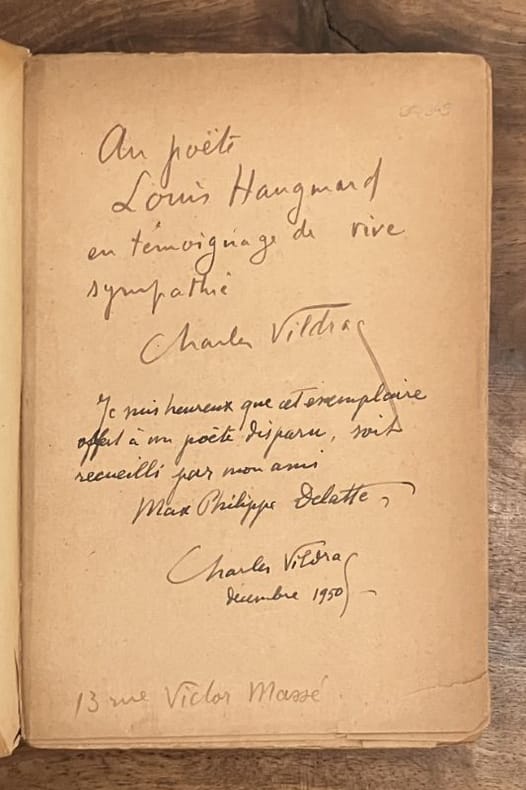 Au poète
Louis Haugmard
en témoignage de vive
sympathie
Charles Vildrac
Je suis heureux que cet exemplaire
offert à un poète disparu, soit
recueilli par mon ami
Max Philippe Delatte
Charles Vildrac
décembre 1950
13 rue Victor Massé